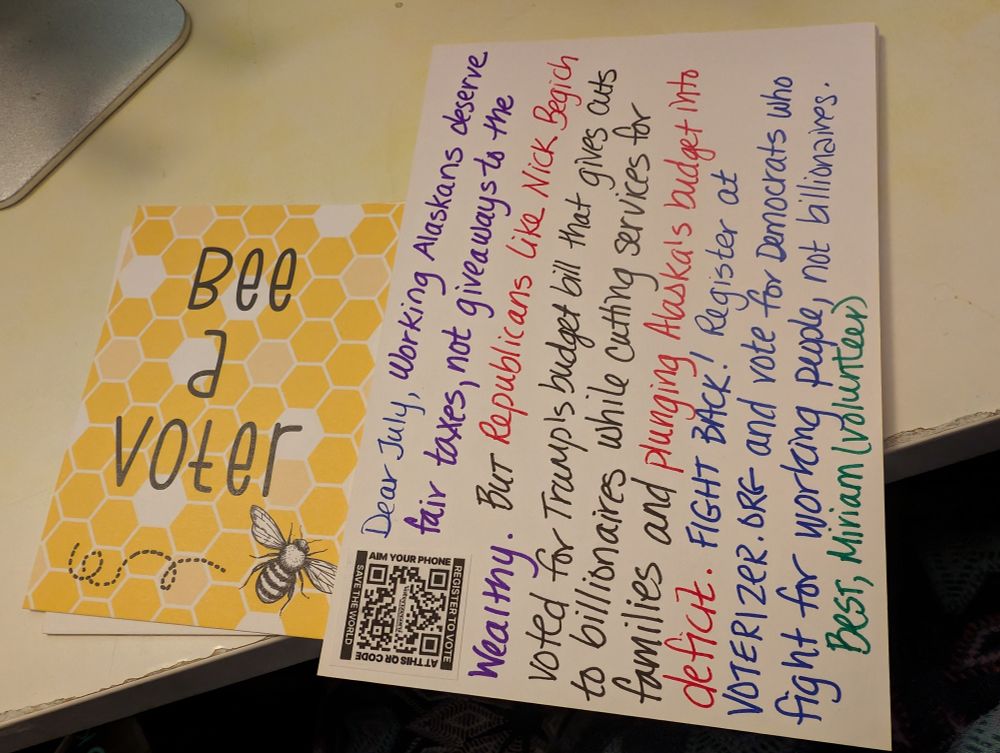 Bee
a
voter
Dear July, working Alaskans deserve
fair taxes, not giveaways to the
wealthy. But Republicans like Nick Begich
voted for Trump's budget bill that gives cuts
to billionaires while cutting services for
families and plunging Alaska's budget into
deficit. FIGHT BACK! Register at
VOTERIZER.ORG and vote for Democrats who
fight for working people, not billionaires.
Best, Miriam (volunteer)
AIM YOUR PHONE
REGISTER TO VOTE
AT THIS QR CODE
SAVE THE WORLD